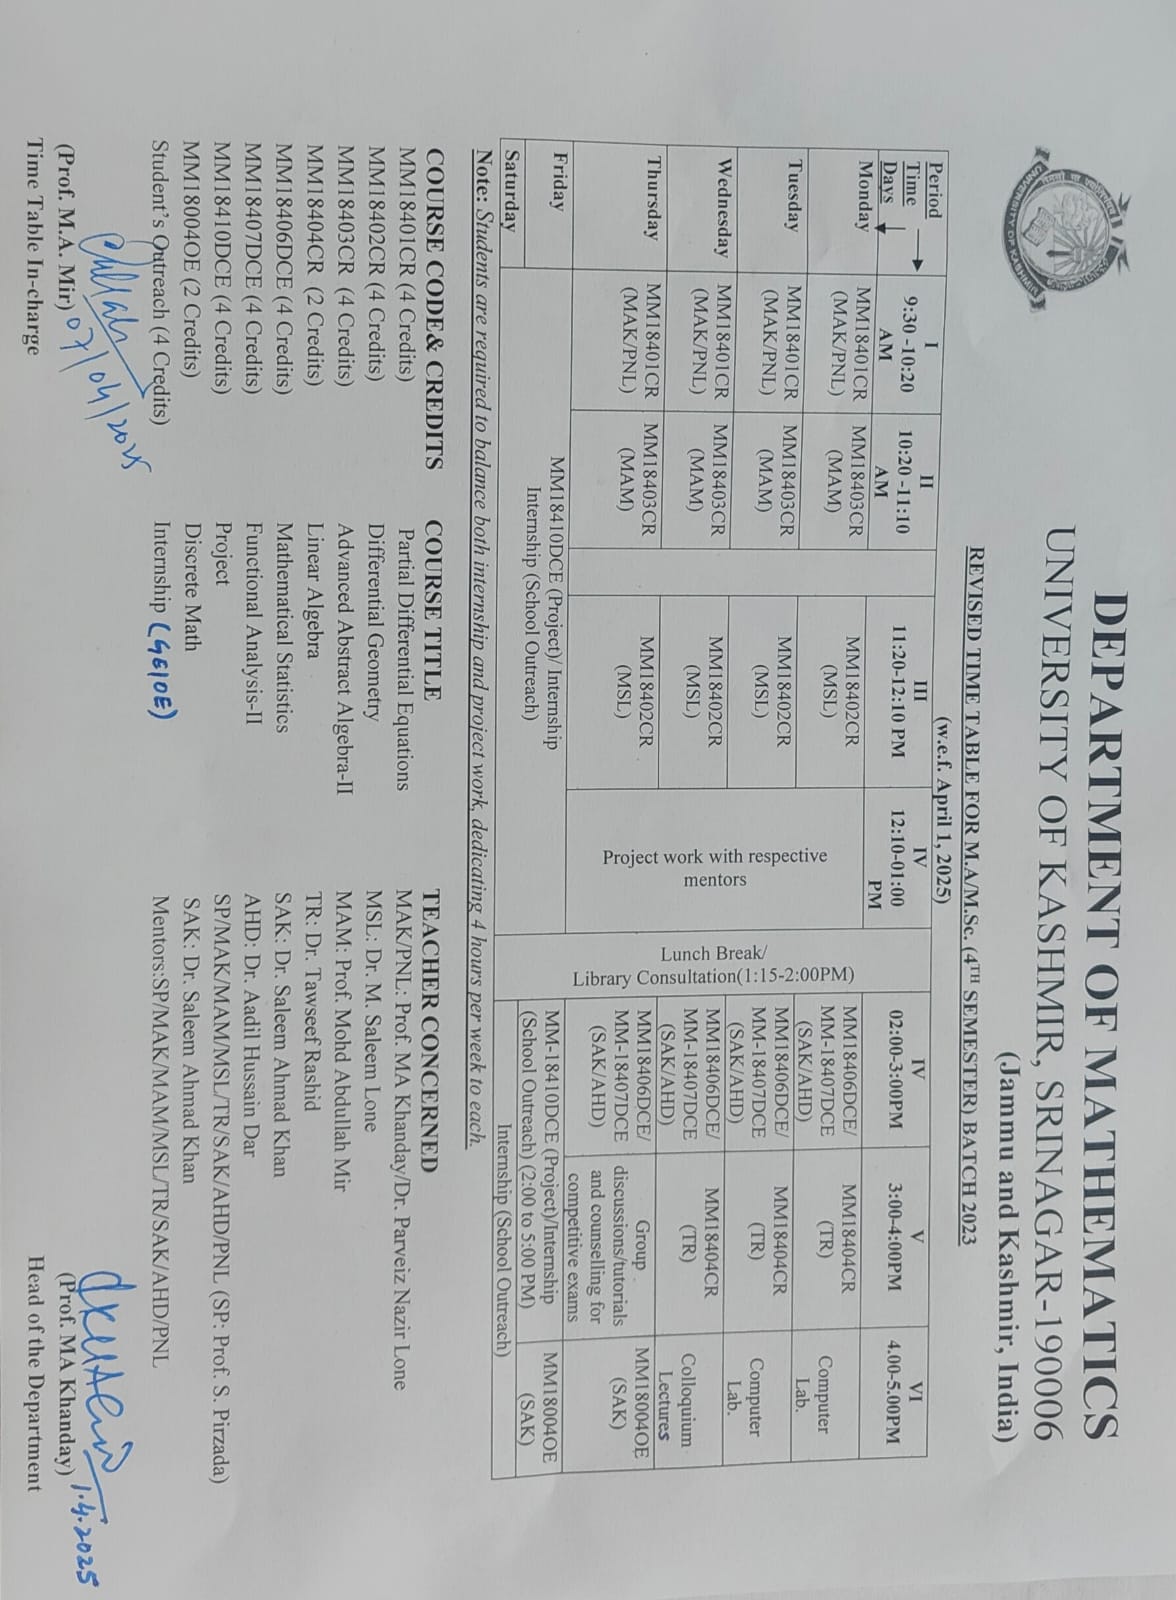 DEPARTMENT OF MATHEMATICS
UNIVERSITY OF KASHMIR, SRINAGAR-190006
(Jammu and Kashmir, India)
REVISED TIME TABLE FOR M.A/M.Sc. (4TH SEMESTER) BATCH 2023
(w.e.f. April 1, 2025)
UNIVERSITY OF KASHMIR
Period Time Days
I 9:30 -10:20 AM
II 10:20 -11:10 AM
III 11:20-12:10 PM
IV 12:10-01:00 PM
IV 02:00-3:00PM
V 3:00-4:00PM
VI 4.00-5.00PM
Monday
MM18401CR (MAK/PNL)
MM18403CR (MAM)
MM18402CR (MSL)
Project work with respective mentors
Lunch Break/
Library Consultation(1:15-2:00PM)
MM18406DCE/ MM-18407DCE (SAK/AHD)
MM18404CR (TR)
Computer Lab.
Tuesday
MM18401CR (MAK/PNL)
MM18403CR (MAM)
MM18402CR (MSL)
MM18406DCE/ MM-18407DCE (SAK/AHD)
MM18404CR (TR)
Computer Lab.
Wednesday
MM18401CR (MAK/PNL)
MM18403CR (MAM)
MM18402CR (MSL)
MM18406DCE/ MM-18407DCE (SAK/AHD)
MM18404CR (TR)
Colloquium Lectures
Thursday
MM18401CR (MAK/PNL)
MM18403CR (MAM)
MM18402CR (MSL)
MM18406DCE/ MM-18407DCE (SAK/AHD)
Group discussions/tutorials and counselling for competitive exams
MM18004OE (SAK)
Friday
MM18410DCE (Project)/ Internship
Internship (School Outreach)
MM-18410DCE (Project)/Internship
(School Outreach) (2:00 to 5:00 PM)
MM18004OE (SAK)
Saturday
Internship (School Outreach)
Note: Students are required to balance both internship and project work, dedicating 4 hours per week to each.
COURSE CODE& CREDITS COURSE TITLE TEACHER CONCERNED
MM18401CR (4 Credits) Partial Differential Equations MAK/PNL: Prof. MA Khanday/Dr. Parveiz Nazir Lone
MM18402CR (4 Credits) Differential Geometry MSL: Dr. M. Saleem Lone
MM18403CR (4 Credits) Advanced Abstract Algebra-II MAM: Prof. Mohd Abdullah Mir
MM18404CR (2 Credits) Linear Algebra TR: Dr. Tawseef Rashid
MM18406DCE (4 Credits) Mathematical Statistics SAK: Dr. Saleem Ahmad Khan
MM18407DCE (4 Credits) Functional Analysis-II AHD: Dr. Aadil Hussain Dar
MM18410DCE (4 Credits) Project SP/MAK/MAM/MSL/TR/SAK/AHD/PNL (SP: Prof. S. Pirzada)
MM18004OE (2 Credits) Discrete Math SAK: Dr. Saleem Ahmad Khan
Student's Outreach (4 Credits) Internship (GE/OE) Mentors:SP/MAK/MAM/MSL/TR/SAK/AHD/PNL
07/04/2025
1.4.2025
(Prof. M.A. Mir) (Prof. MA Khanday)
Time Table In-charge Head of the Department